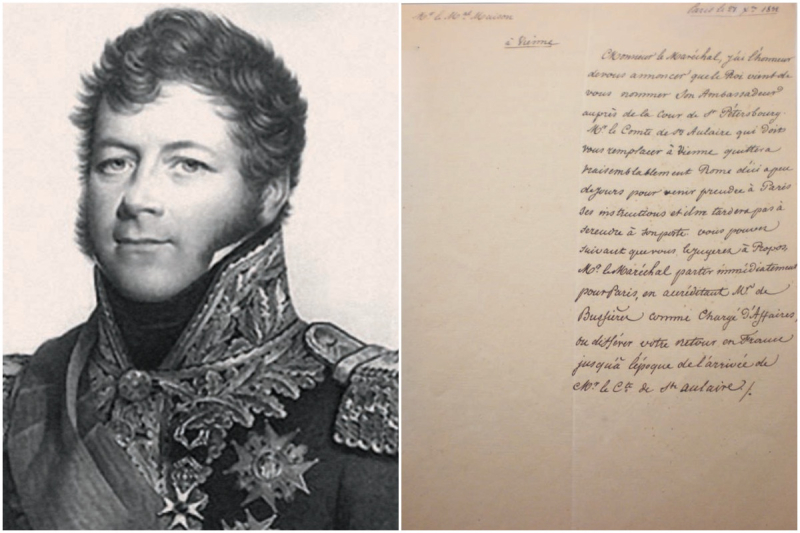 Mr. le Mal. Maison
Paris le 28 Xbre
à Vienne
Monsieur le Maréchal, j'ai l'honneur
de vous annoncer que le Roi vient de
vous nommer Son Ambassadeur
auprès de la Cour de St. Pétersbourg.
Mr. le Comte de Ste Aulaire qui doit
vous remplacer à Vienne quittera
vraisemblablement Rome d'ici à peu
de jours pour venir prendre à Paris
ses instructions et il ne tardera pas à
se rendre à son poste. vous pouvez
suivant que vous le jugerez à Propos,
Mr. le Maréchal partir immédiatement
pour Paris, en accréditant Mr. de
Bussière comme Chargé d'Affaires,
ou différer votre retour en France
jusqu'à l'époque de l'arrivée de
Mr. le Cte. de Ste aulaire ./.